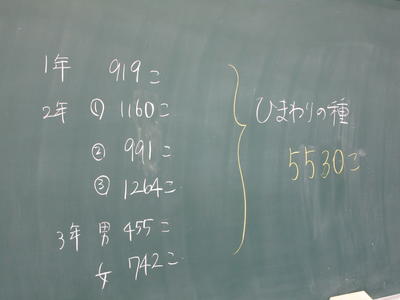 1年 919こ
2年 ① 1160こ
② 991こ
③ 1264こ
3年 男 455こ
女 742こ
ひまわりの種
5530こ